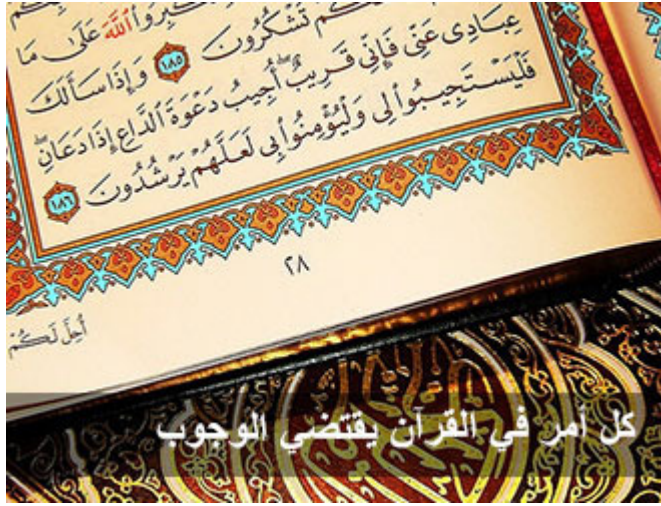 كُمْ تَشْكُرُونَ ١٨٥ وَإِذَا سَأَلَكَ
عِبَادِى عَنِّى فَإِنِّى قَرِيبٌ أُجِيبُ دَعْوَةَ ٱلدَّاعِ إِذَا دَعَانِ
فَلْيَسْتَجِيبُوا۟ لِى وَلْيُؤْمِنُوا۟ بِى لَعَلَّهُمْ يَرْشُدُونَ ١٨٦
٢٨
أُحِلَّ لَكُمْ
كل أمر في القرآن يقتضي الوجوب